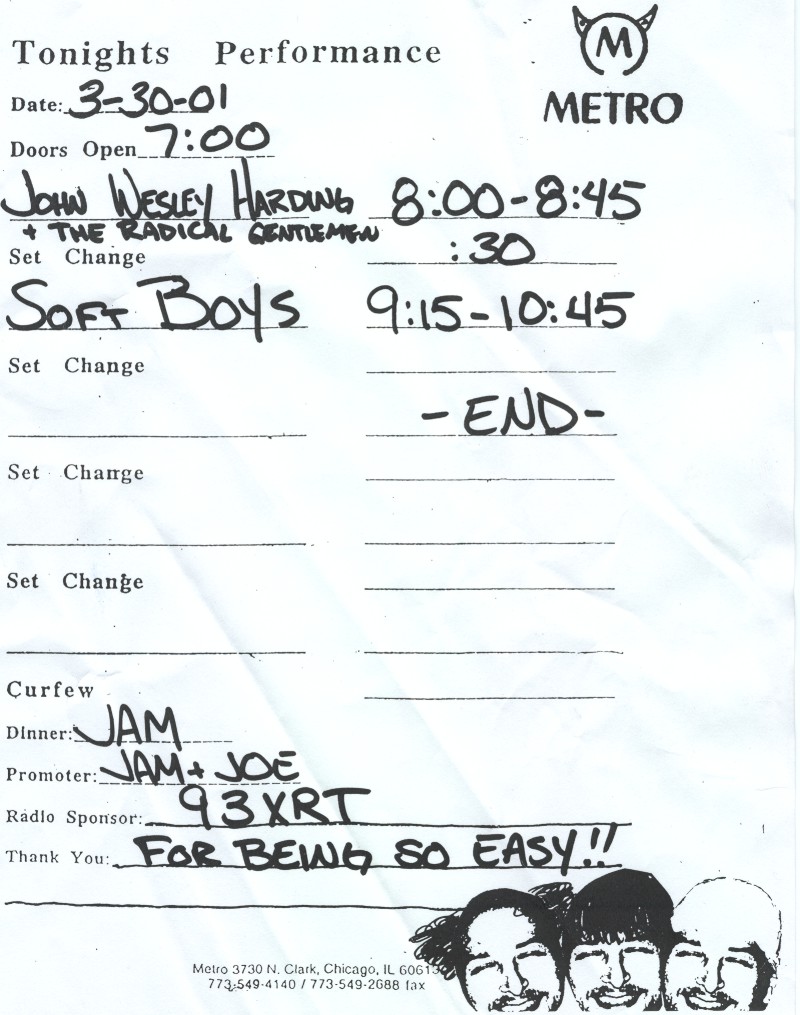 Tonights Performance
M
METRO
Date: 3-30-01
Doors Open 7:00
John Wesley Harding 8:00-8:45
+ The Radical Gentlemen
Set Change :30
Soft Boys 9:15-10:45
Set Change
-END-
Set Change
Set Change
Curfew
Dinner: JAM
Promoter: JAM + JOE
Radio Sponsor: 93XRT
Thank You: FOR BEING SO EASY!!
Metro 3730 N. Clark, Chicago, IL 60613
773-549-4140 / 773-549-2688 fax